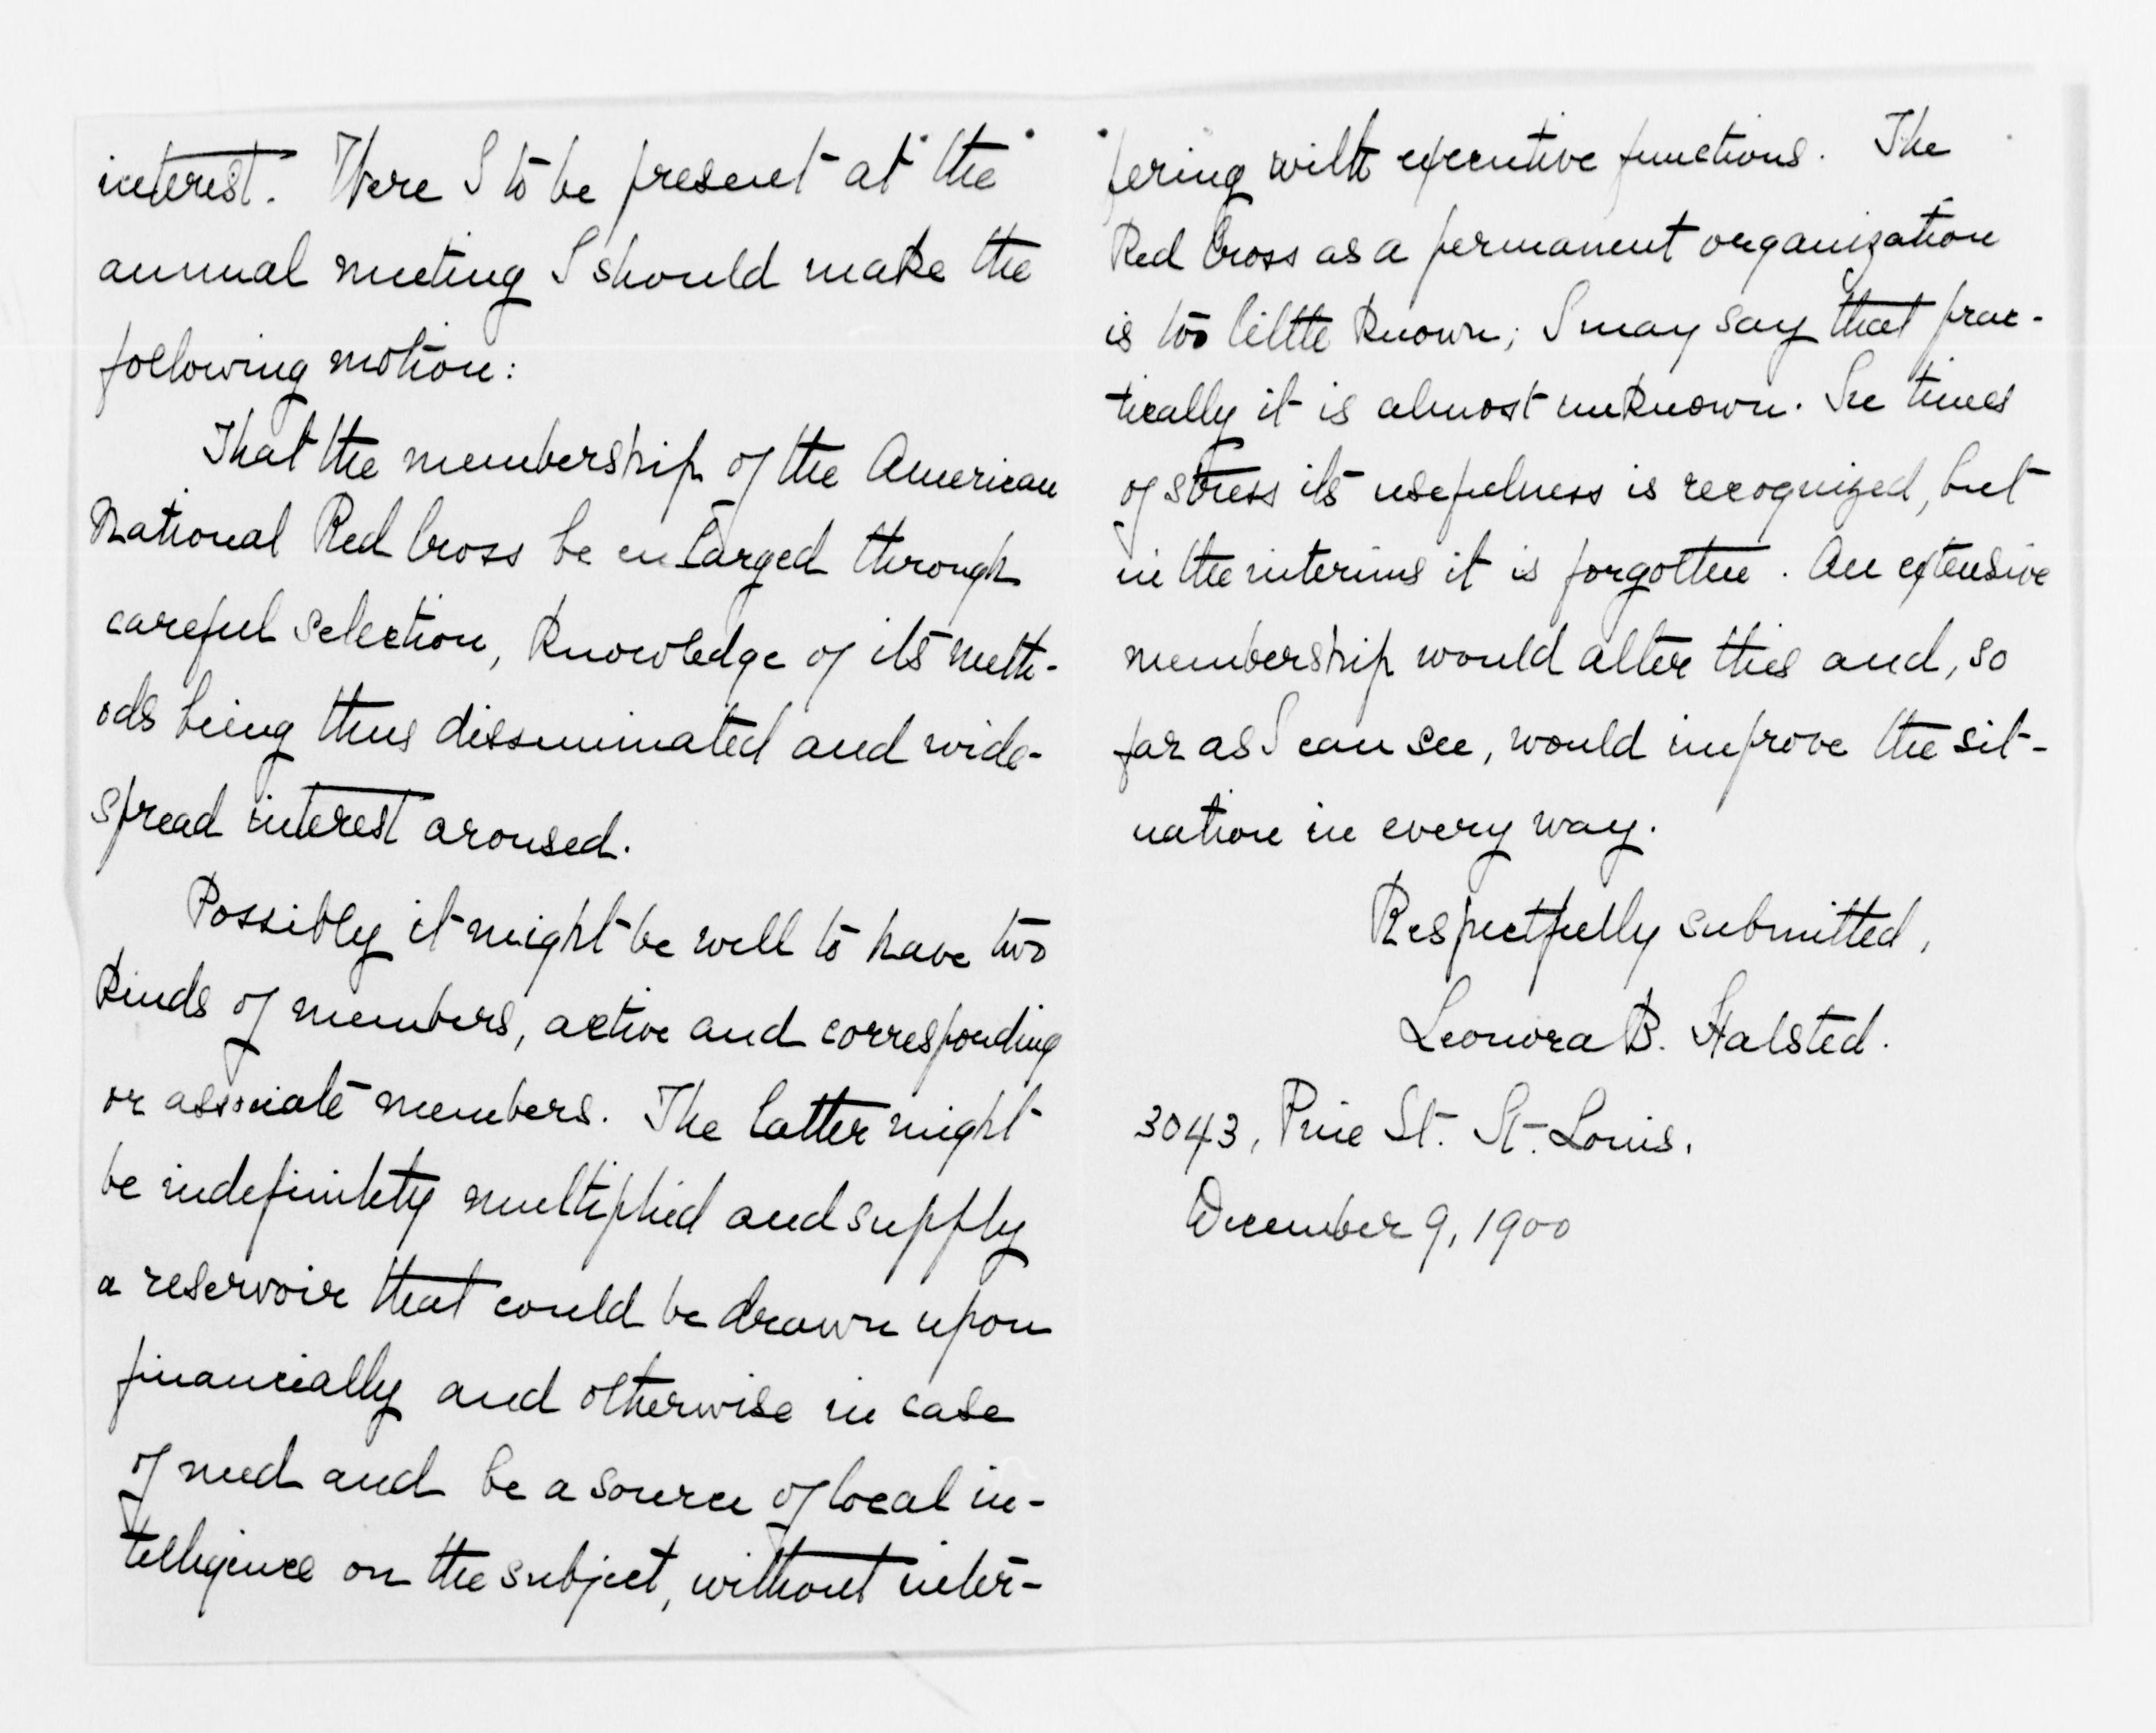 interest. Were I to be present at the
annual meeting I should make the
following motion:
That the membership of the American
National Red Cross be enlarged through
careful selection, knowledge of its meth-
ods being thus disseminated and wide-
spread interest aroused.
Possibly it might be well to have two
kinds of members, active and corresponding
or associate members. The latter might
be indefinitely multiplied and supply
a reservoir that could be drawn upon
financially and otherwise in case
of need and be a source of local in-
telligence on the subject, without inter-
fering with executive functions. The
Red Cross as a permanent organization
is too little known; I may say that prac-
tically it is almost unknown. In times
of stress its usefulness is recognized, but
in the interims it is forgotten. An extensive
membership would alter this and, so
far as I can see, would improve the sit-
uation in every way.
Respectfully submitted,
Leonora B. Halsted.
3043, Pine St. St. Louis.
December 9, 1900